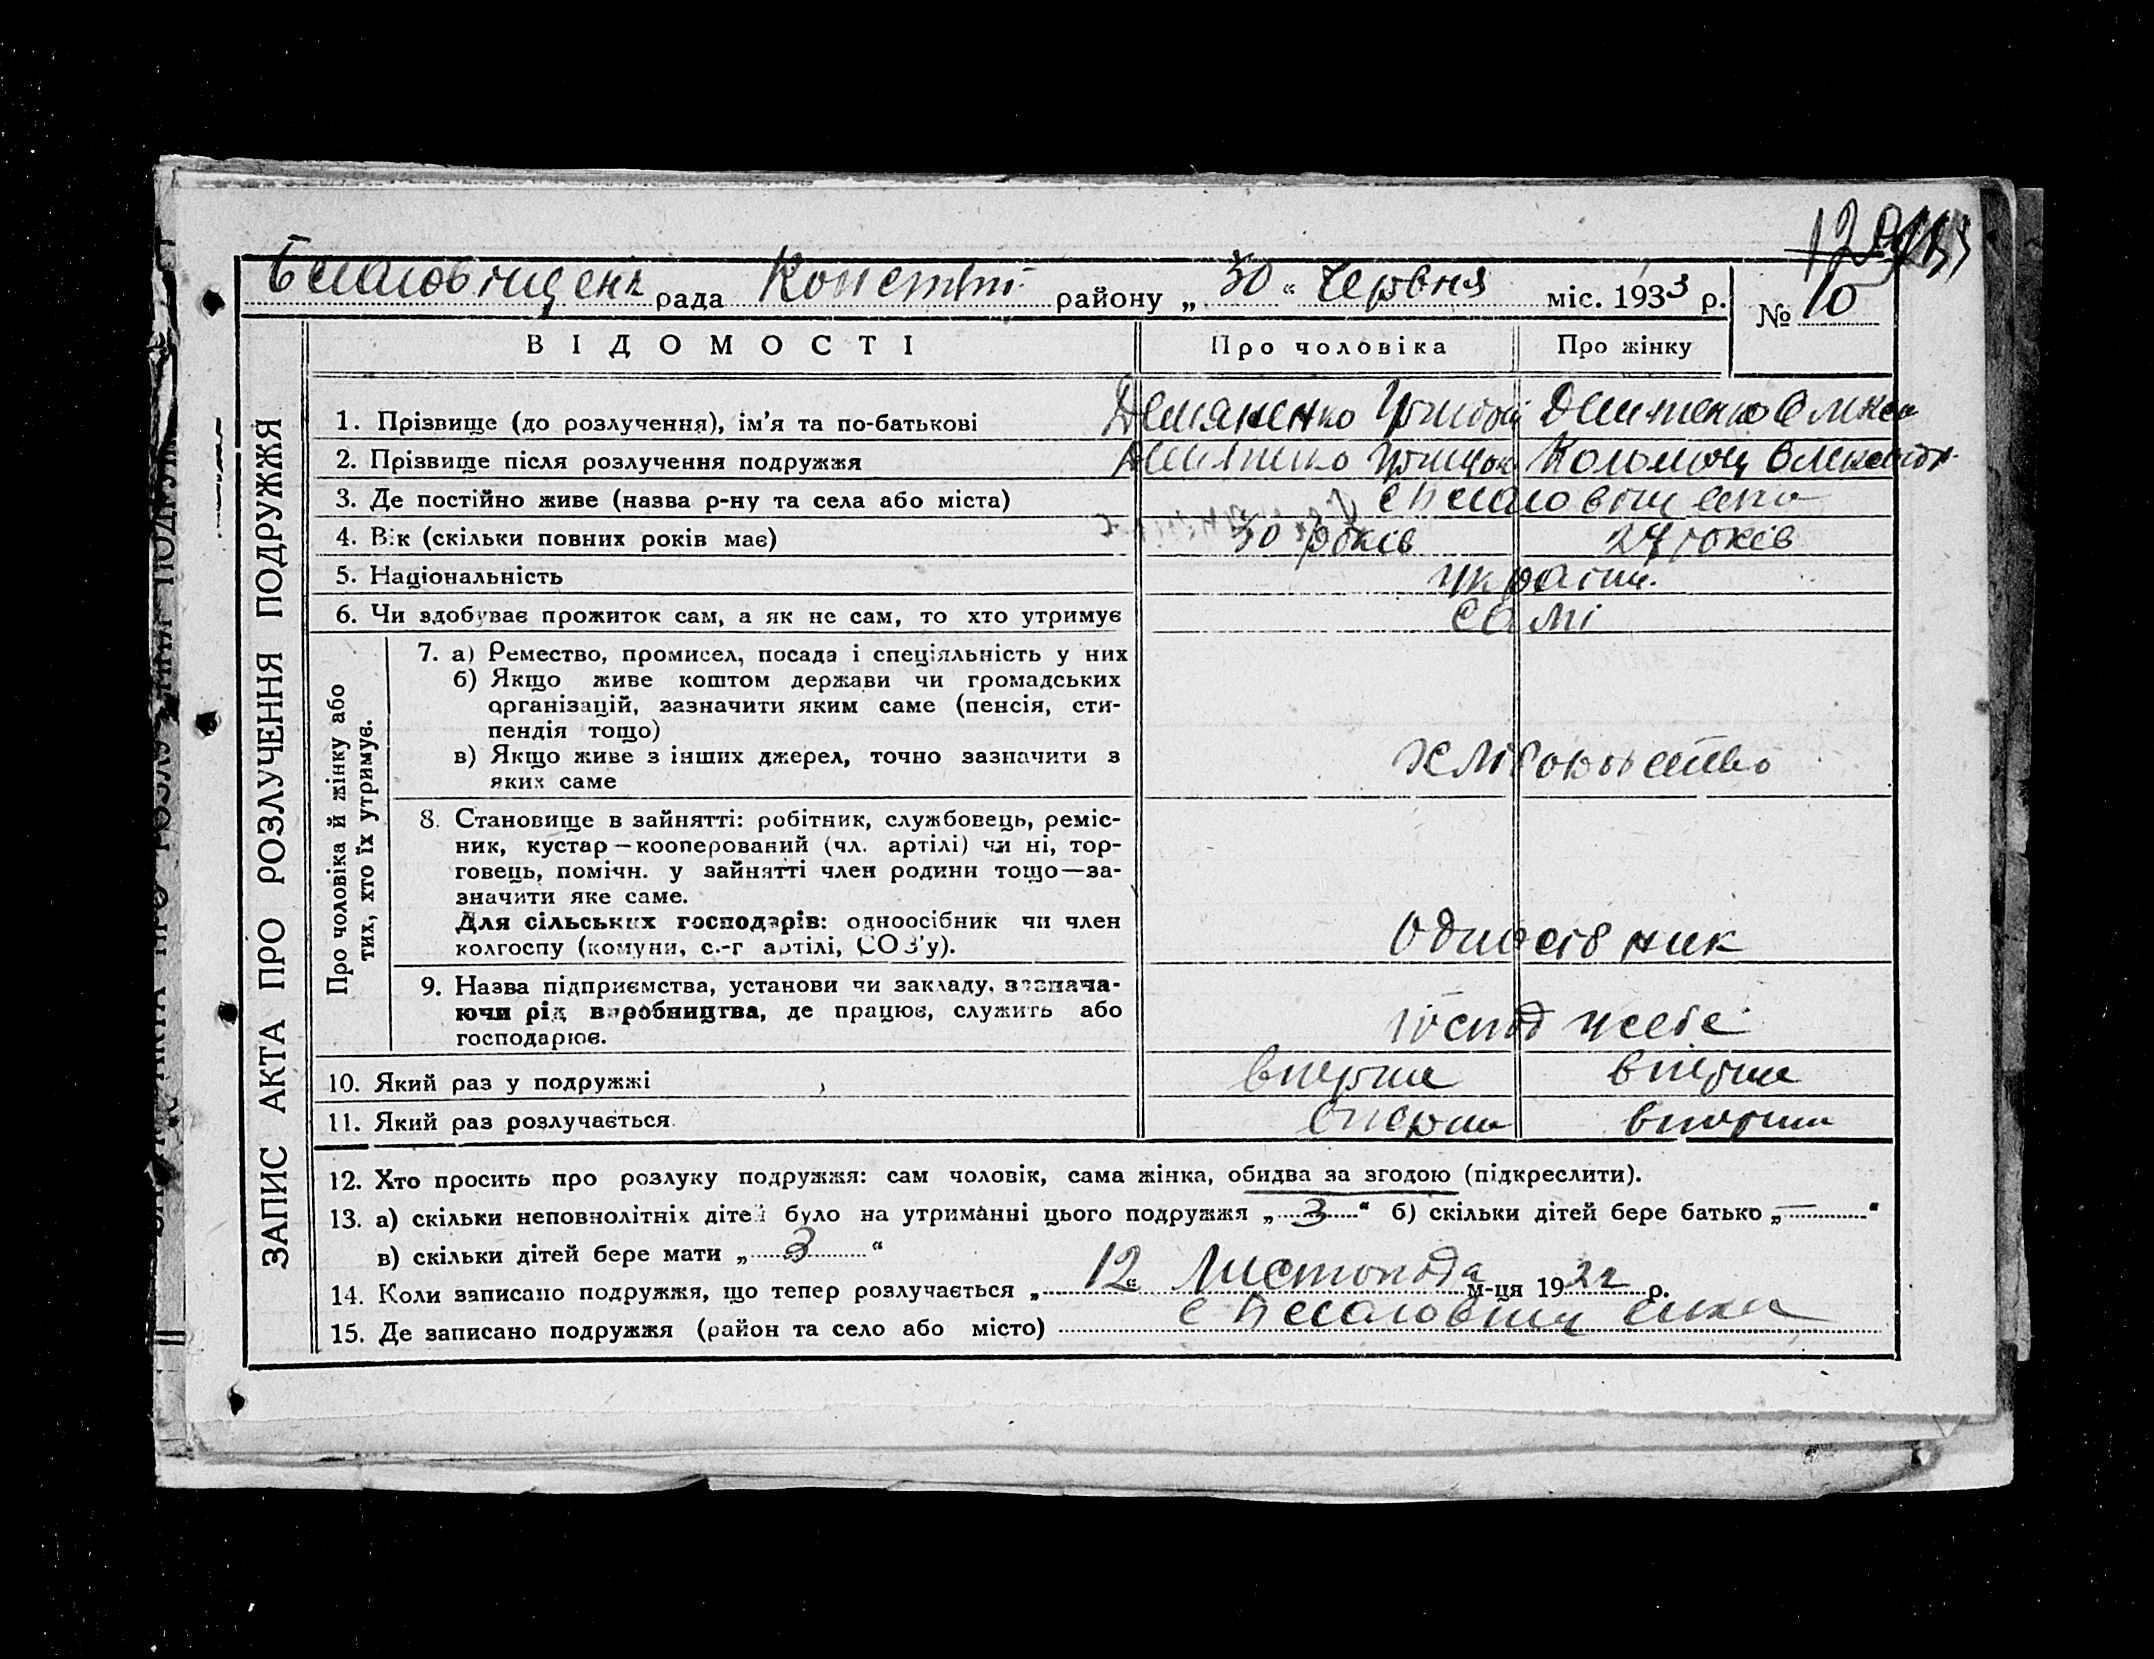 рада району „ 30 “ Червня міс. 1933 р.
№ 10
ВІДОМОСТІ Про чоловіка Про жінку
ЗАПИС АКТА ПРО РОЗЛУЧЕННЯ ПОДРУЖЖЯ
1. Прізвище (до розлучення), ім'я та по-батькові Демяненко
2. Прізвище після розлучення подружжя
3. Де постійно живе (назва р-ну та села або міста)
4. Вік (скільки повних років має) 30 років 27 років
5. Національність україн.
6. Чи здобуває прожиток сам, а як не сам, то хто утримує самі
Про чоловіка й жінку або
тих, хто їх утримує.
7. а) Ремество, промисел, посада і спеціяльність у них
б) Якщо живе коштом держави чи громадських
організацій, зазначити яким саме (пенсія, сти-
пендія тощо)
в) Якщо живе з інших джерел, точно зазначити з
яких саме
8. Становище в зайнятті: робітник, службовець, реміс-
ник, кустар—кооперований (чл. артілі) чи ні, тор-
говець, помічн. у зайнятті член родини тощо—за-
значити яке саме.
Для сільських господарів: одноосібник чи член
колгоспу (комуни, с.-г артілі, СОЗ'у).
9. Назва підприємства, установи чи закладу, зазнача-
ючи рід виробництва, де працює, служить або
господарює.
10. Який раз у подружжі вперше вперше
11. Який раз розлучається вперше вперше
12. Хто просить про розлуку подружжя: сам чоловік, сама жінка, обидва за згодою (підкреслити).
13. а) скільки неповнолітніх дітей було на утриманні цього подружжя „ 3 “ б) скільки дітей бере батько „ — “
в) скільки дітей бере мати „ 3 “
14. Коли записано подружжя, що тепер розлучається „ 12 “ Листопада м-ця 19 р.
15. Де записано подружжя (район та село або місто)